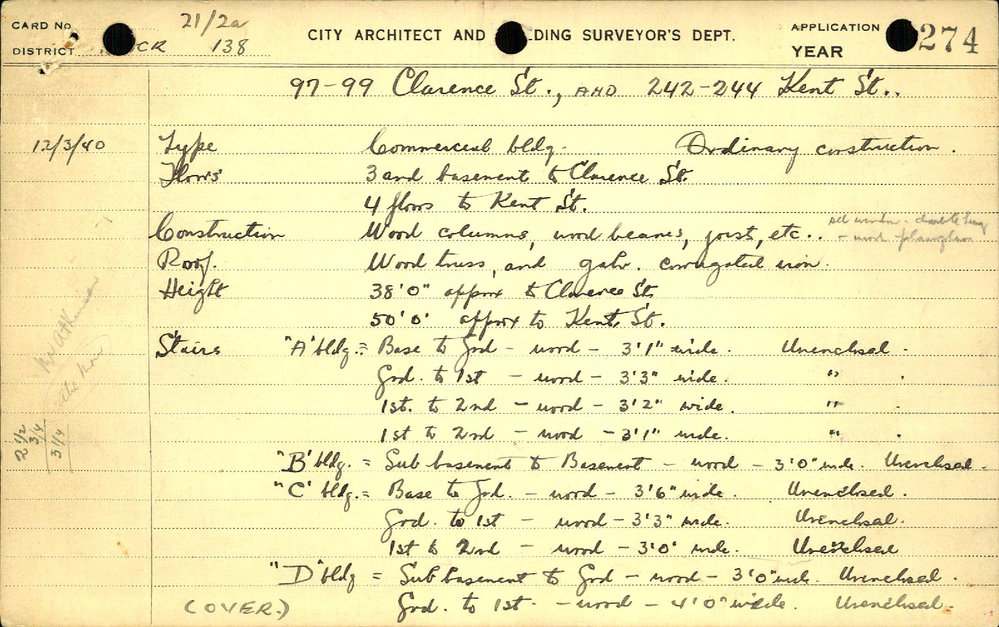 CARD No. 21/2a
DISTRICT 138
CITY ARCHITECT AND BUILDING SURVEYOR'S DEPT.
APPLICATION
YEAR
274
97-99 Clarence St., AND 242-244 Kent St..
12/3/40 Type Commercial bldg. Ordinary construction.
Floors 3 and basement to Clarence St.
4 floors to Kent St.
Construction Wood columns, wood beams, joist, etc..
Roof. Wood truss, and galv. corrugated iron.
Height 38'0" approx to Clarence St.
50'0" approx to Kent St.
Stairs "A" bldg. = Base to Grd - wood - 3'1" wide. Unenclosed.
Grd. to 1st - wood - 3'3" wide. " .
1st. to 2nd - wood - 3'2" wide. "
1st to 2nd - wood - 3'1" wide. " .
"B" bldg. = Sub basement to Basement - wood - 3'0" wide. Unenclosed.
"C" bldg. = Base to Grd. - wood - 3'6" wide. Unenclosed.
Grd. to 1st - wood - 3'3" wide. Unenclosed.
1st to 2nd - wood - 3'0" wide. Unenclosed
"D" bldg = Sub basement to Grd - wood - 3'0" wide. Unenclosed.
Grd. to 1st - wood - 4'0" wide. Unenclosed.
(OVER.)
Mr Atkinson
2 1/2
3/4
3 1/4